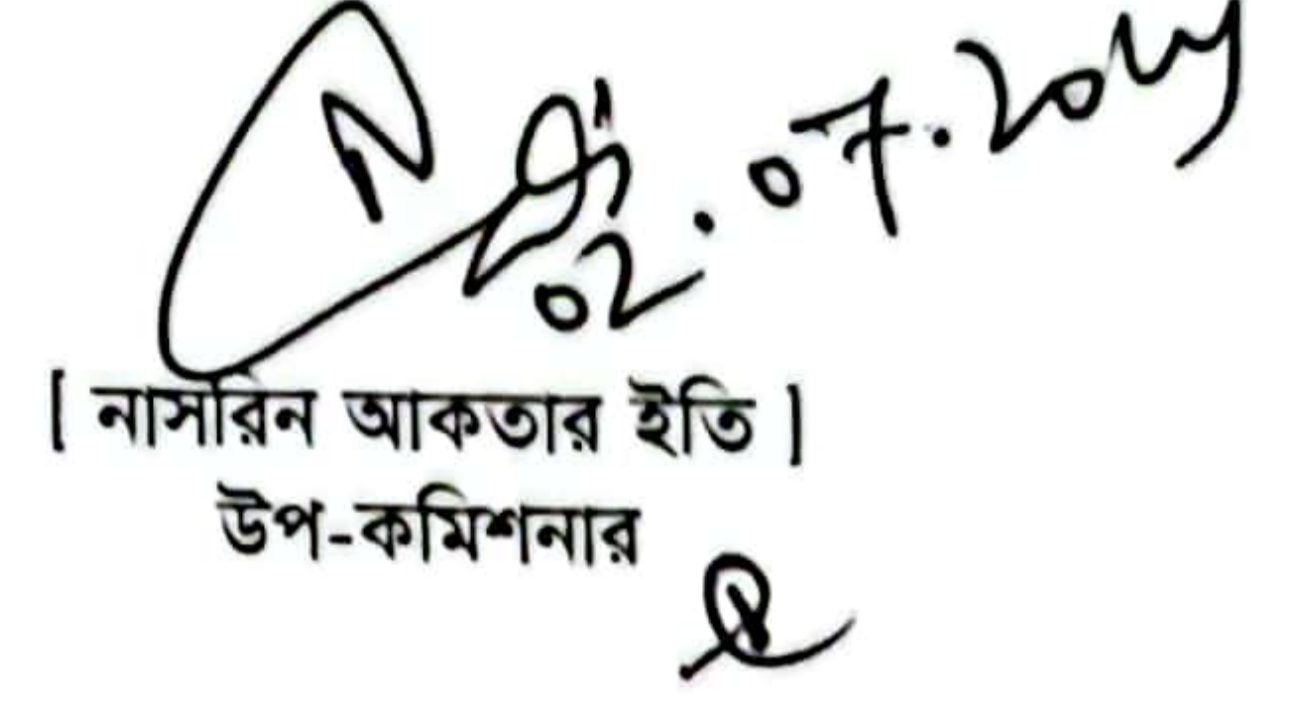 02.07.2025
[ নাসরিন আকতার ইতি ]
উপ-কমিশনার